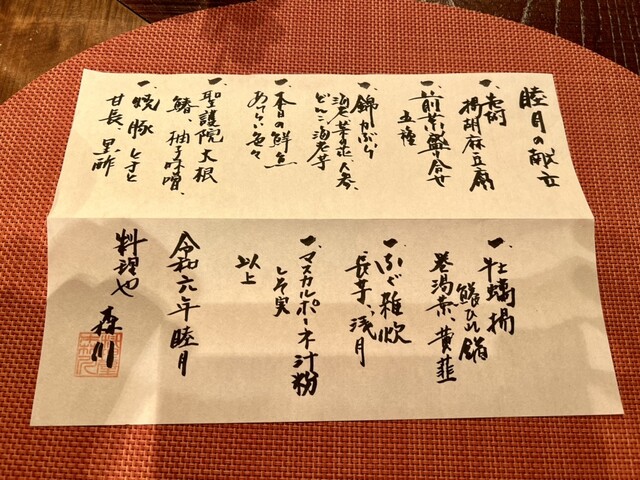 睦月の献立
一、壺胡
揚胡麻豆腐
一、前菜盛り合せ
五種
一、錦かぶら
海老菜、人参、
どんこ、海老芋
一、本日の鮮魚
あてらい色々
一、聖護院大根
鰆、柚子味噌、
一、焼豚
甘長、黒酢
一、牡蠣揚
鱶ひれ餡
巻湯葉、黄韮
一、ふぐ雑炊
長芋、浅月
一、マスカルポーネ汁粉
しそ実
以上
令和六年 睦月
料理や 森川